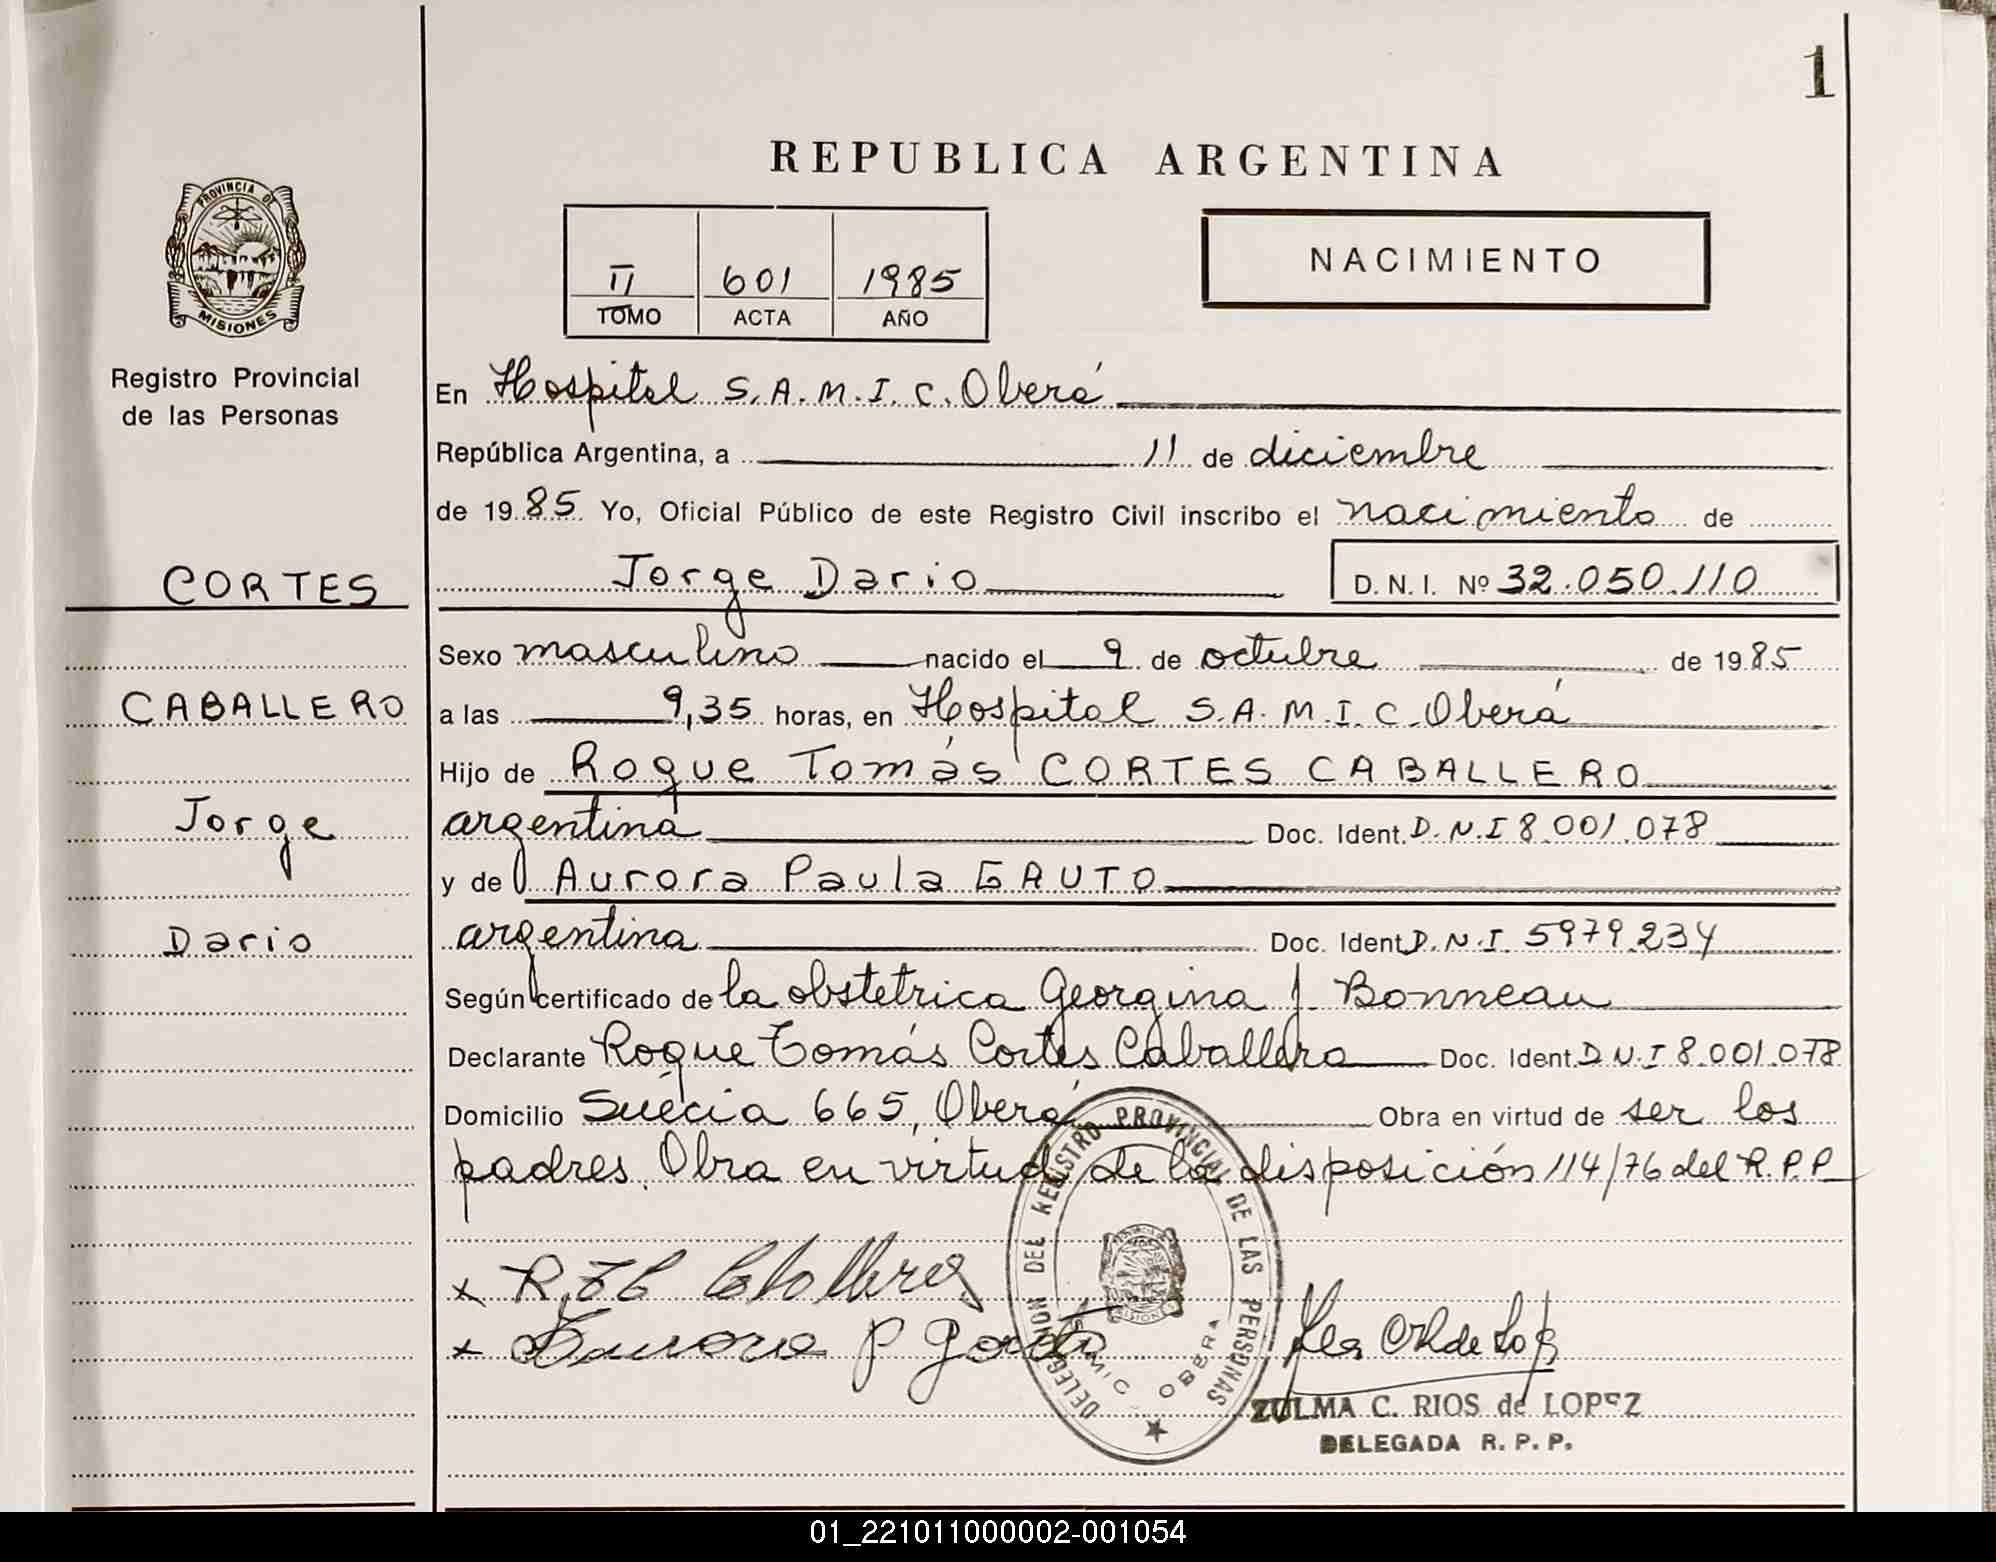 1
REPUBLICA ARGENTINA
PROVINCIA DE
MISIONES
Registro Provincial
de las Personas
II 601 1985
TOMO ACTA AÑO
NACIMIENTO
CORTES
CABALLERO
Jorge
Dario
En Hospital S.A.M.I.C. Oberá
República Argentina, a 11 de diciembre
de 1985 Yo, Oficial Público de este Registro Civil inscribo el nacimiento de
Jorge Dario D.N.I. Nº 32.050.110
Sexo masculino nacido el 9 de octubre de 1985
a las 9,35 horas, en Hospital S.A.M.I.C. Oberá
Hijo de Roque Tomás CORTES CABALLERO
argentina Doc. Ident. D.N.I 8.001.078
y de Aurora Paula GAUTO
argentina Doc. Ident D.N.I. 5979.234
Según certificado de la obstetrica Georgina J. Bonneau
Declarante Roque Tomás Cortes Caballero Doc. Ident. D.N.I 8.001.078
Domicilio Suecia 665, Oberá Obra en virtud de ser los
padres. Obra en virtud de la disposición 114/76 del R.P.P
DELEGACION DEL REGISTRO PROVINCIAL DE LAS PERSONAS
SAMIC OBERA
ZULMA C. RIOS de LOPEZ
DELEGADA R. P. P.
01_221011000002-001054